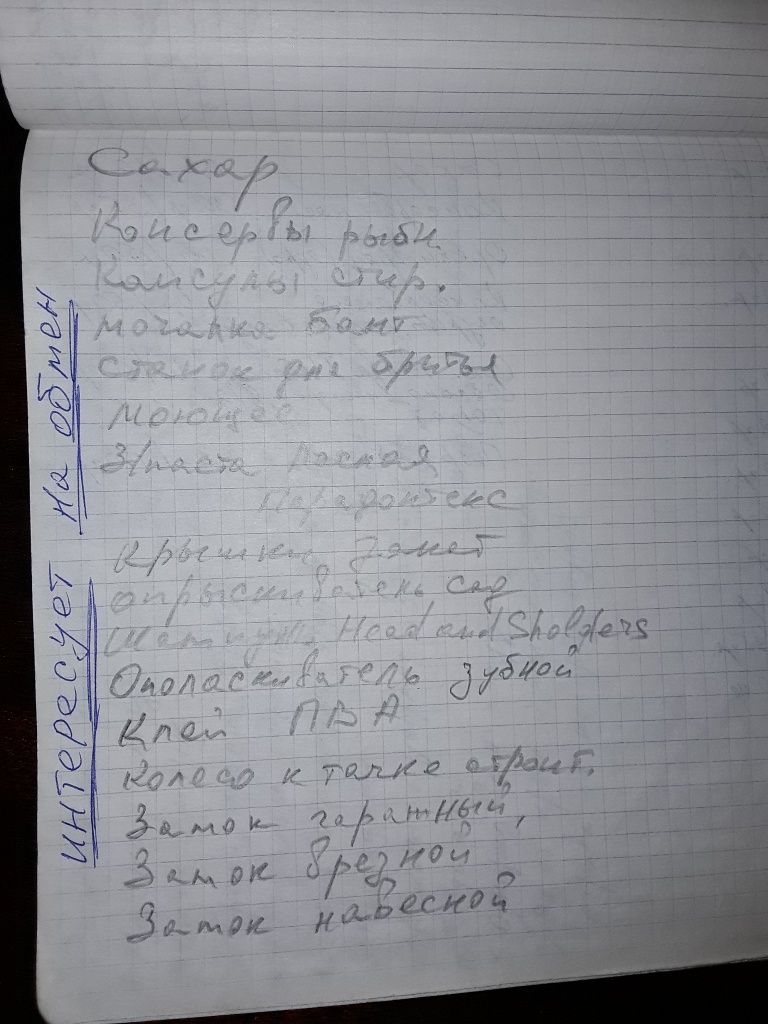 Сахар
Консервы рыбн.
Капсулы стир.
Мочалка бант
Станок для бритья
Моющее
З/паста Лесная
Парадонтекс
Крышки Закат
опрыскиватель сад
Шампунь Head and Sholders
Ополаскиватель зубной
Клей ПВА
Колесо к тачке строит.
Замок гаражный,
Замок врезной
Замок навесной
интересует на обмен